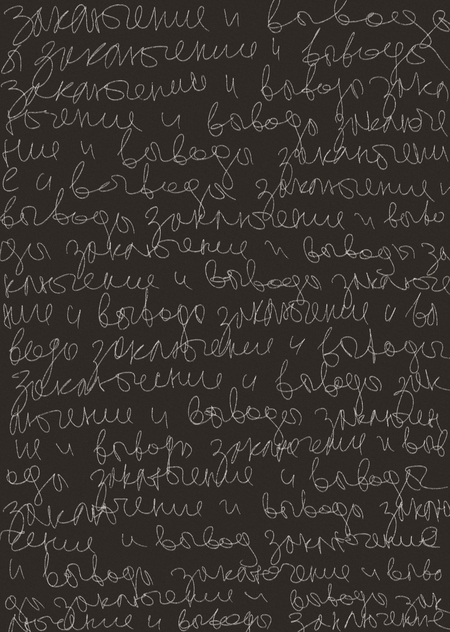 заключение и вывод
ы заключение и выводы
заключение и выводы закл
ючение и выводы заключе
ние и выводы заключени
е и выводы заключение и
выводы заключение и выво
ды заключение и выводы за
ключение и выводы заключе
ние и выводы заключение и вы
воды заключение и выводы
заключение и выводы зак
лючение и выводы заключен
ие и выводы заключение и выв
оды заключение и выводы
заключение и выводы заклю
чение и выводы заключение
и выводы заключение и выво
ды заключение и выводы зак
лючение и выводы заключение